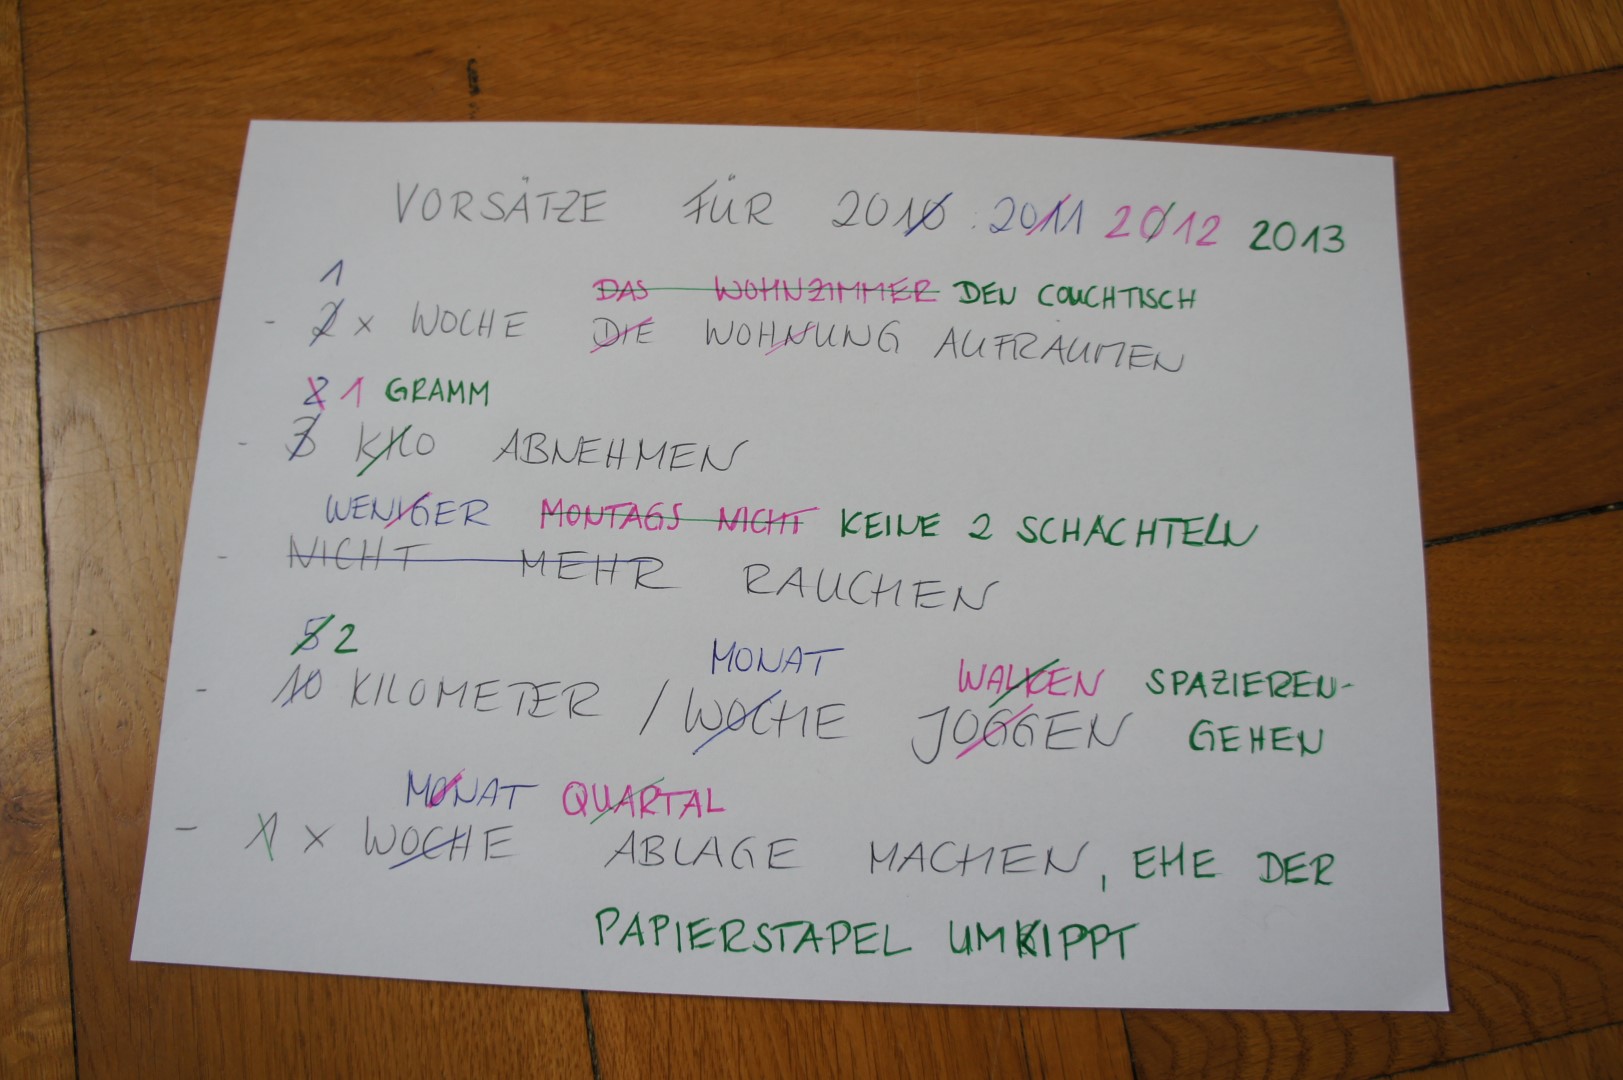 VORSÄTZE FÜR 2010 2011 2012 2013
1
DAS WOHNZIMMER DEN COUCHTISCH
- 2 x WOCHE DIE WOHNUNG AUFRÄUMEN
2 1 GRAMM
- 3 KILO ABNEHMEN
WENIGER MONTAGS NICHT KEINE 2 SCHACHTELN
- NICHT MEHR RAUCHEN
5 2
MONAT WALKEN SPAZIEREN-
- 10 KILOMETER / WOCHE JOGGEN GEHEN
MONAT QUARTAL
- 1 x WOCHE ABLAGE MACHEN, EHE DER
PAPIERSTAPEL UMKIPPT